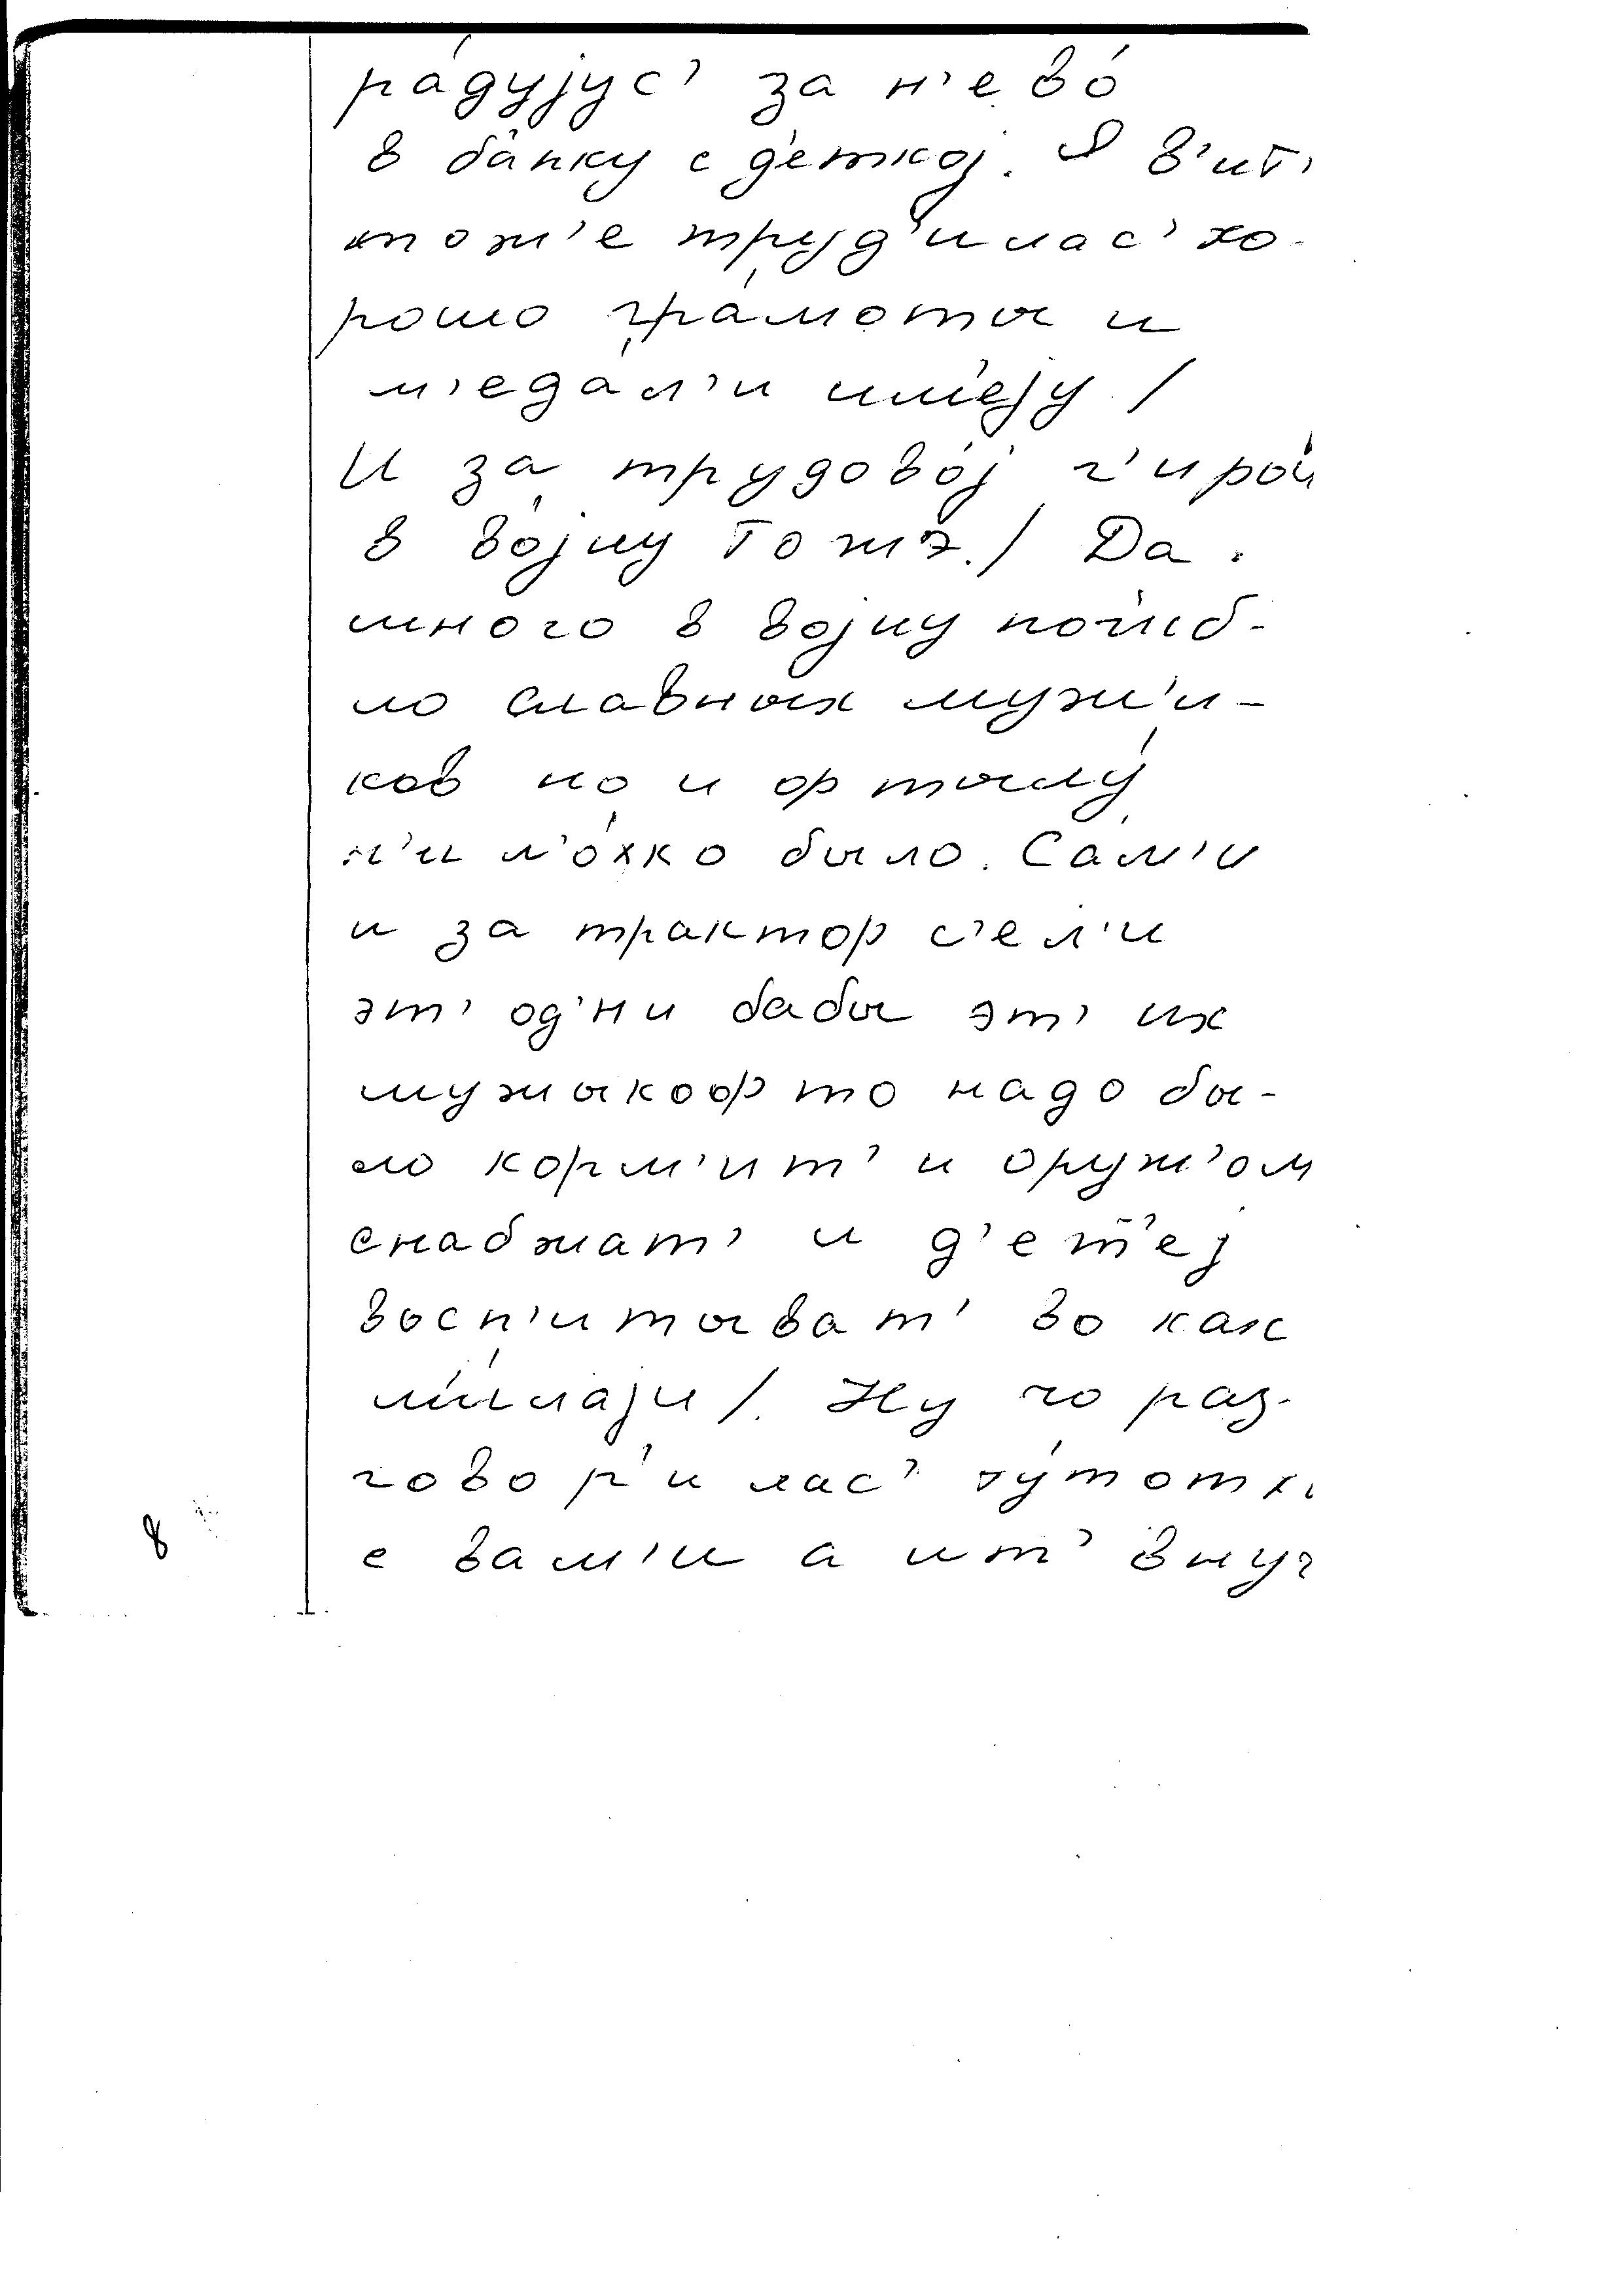 ра́дуjус' за н'ево́
в ба́пку с д'еткоj. Я в'ит'
тож'е труд'илас' хо-
рошо гра́моты и
м'еда́л'и им'е́jу /
И за трудово́j г'иро́й
в во́jну тожэ. / Да.
много в воjну пог'иб-
ло славных муж'и-
ков но и ф тылу́
н'и л'о́хко было. Са́м'и
и за трактор с'ел'и
эт' од'ни бабы эт' их
мужыкоф то надо бы-
ло корм'ит' и оруж'ом
снабжат' и д'ет'еj
восп'итыват' во как
м'и́лаjи /. Ну чо раз-
говор'илас' ту́тотк'
с вам'и а ит' внуч
8